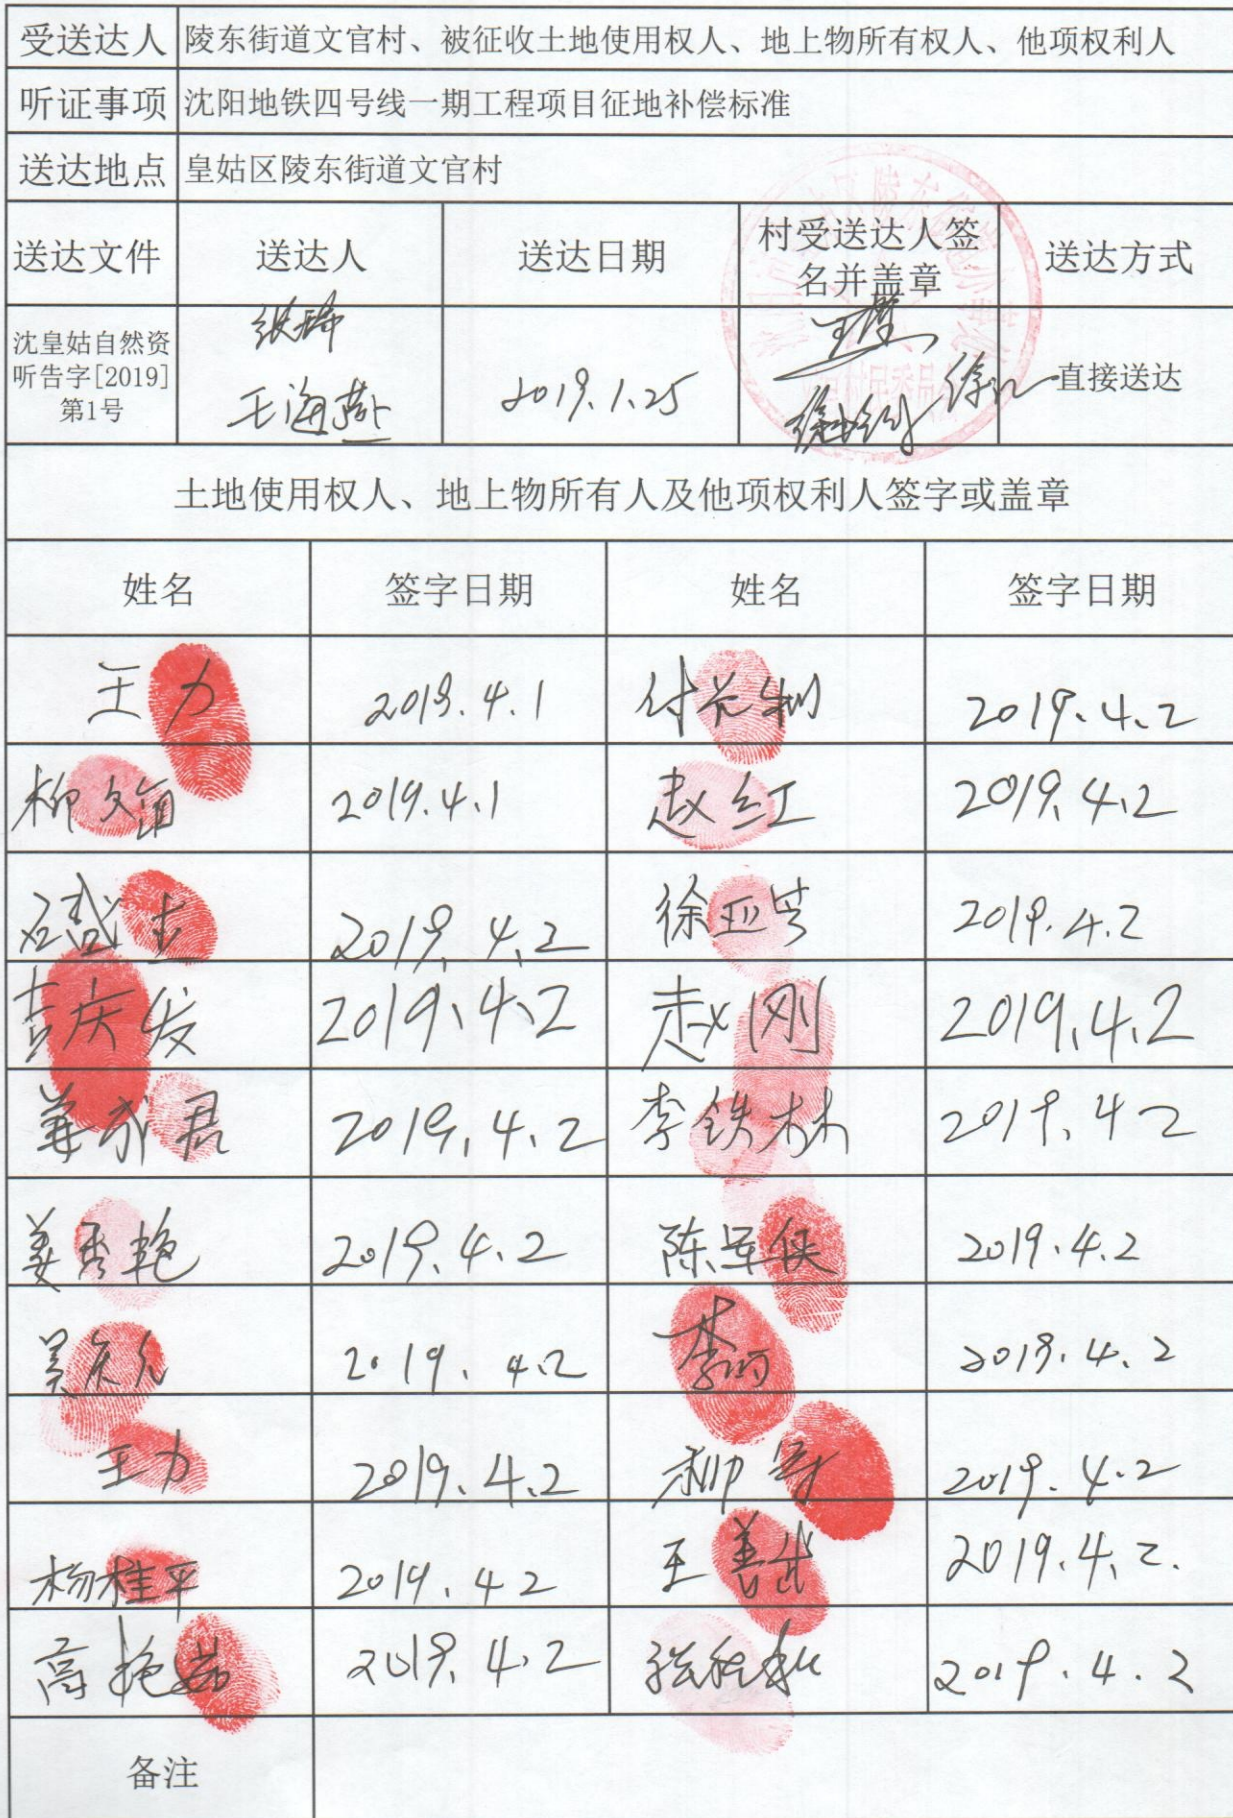 受送达人 陵东街道文官村、被征收土地使用权人、地上物所有权人、他项权利人
听证事项 沈阳地铁四号线一期工程项目征地补偿标准
送达地点 皇姑区陵东街道文官村
送达文件 送达人 送达日期 村受送达人签名并盖章 送达方式
沈皇姑自然资
听告字[2019]
第1号
王海燕 2019.1.25 直接送达
土地使用权人、地上物所有人及他项权利人签字或盖章
姓名 签字日期 姓名 签字日期
王力 2019.4.1 2019.4.2
柳文 2019.4.1 赵红 2019.4.2
2019.4.2 徐亚 2019.4.2
庆发 2019.4.2 赵刚 2019.4.2
姜 君 2019.4.2 李铁林 2019.4 2
姜秀艳 2019.4.2 陈军侠 2019.4.2
2019.4.2 2019.4.2
王力 2019.4.2 柳 2019.4.2
杨桂平 2019.4 2 王善 2019.4.2.
高艳 2019.4.2 张 2019.4.2
备注